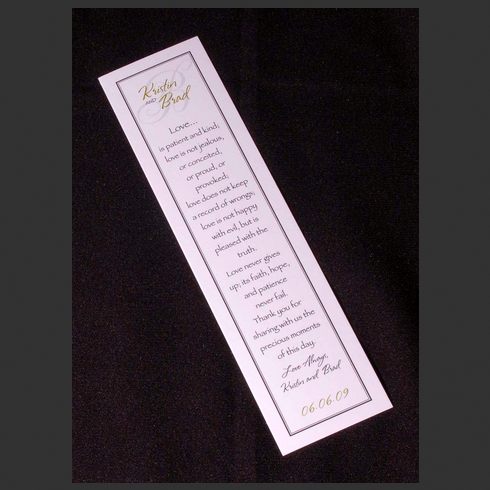 Kristin
AND Brad
Love...
is patient and kind;
love is not jealous,
or conceited,
or proud, or
provoked;
love does not keep
a record of wrongs;
love is not happy
with evil, but is
pleased with the
truth.
Love never gives
up; its faith, hope,
and patience
never fail.
Thank you for
sharing with us the
precious moments
of this day.
Love Always,
Kristin and Brad
06.06.09